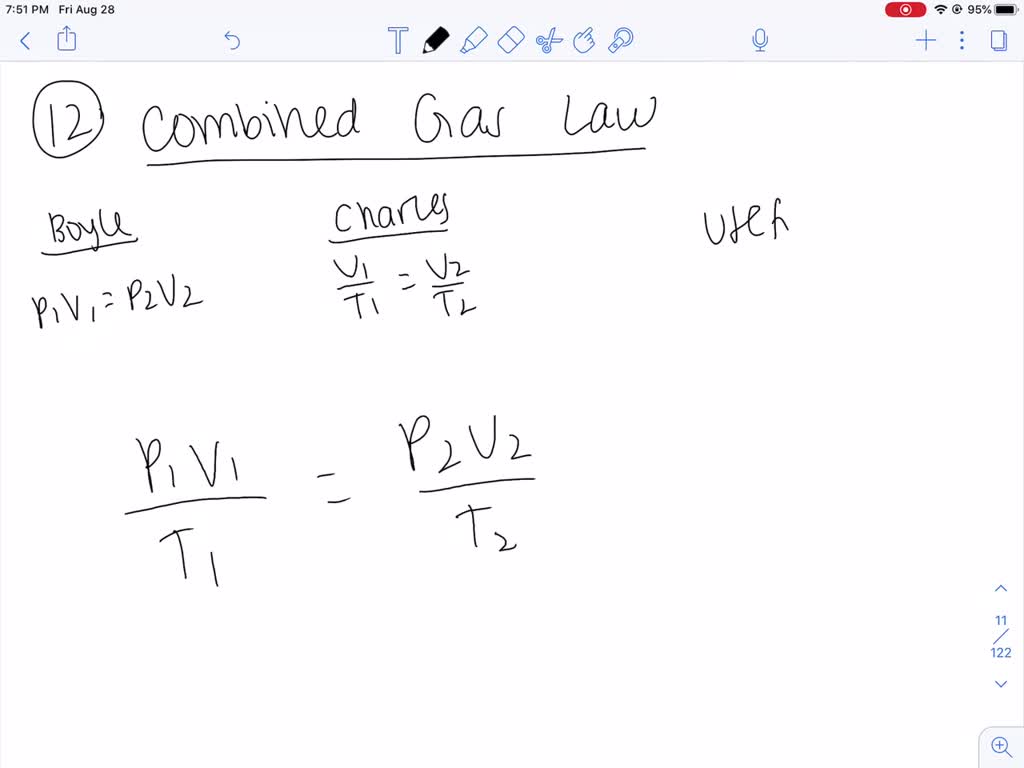 7:51 PM Fri Aug 28
95%
T
12 Combined Gas Law
Boyle
P₁V₁ = P₂V₂
Charles
V₁/T₁ = V₂/T₂
P₁V₁/T₁ = P₂V₂/T₂
11
/
122